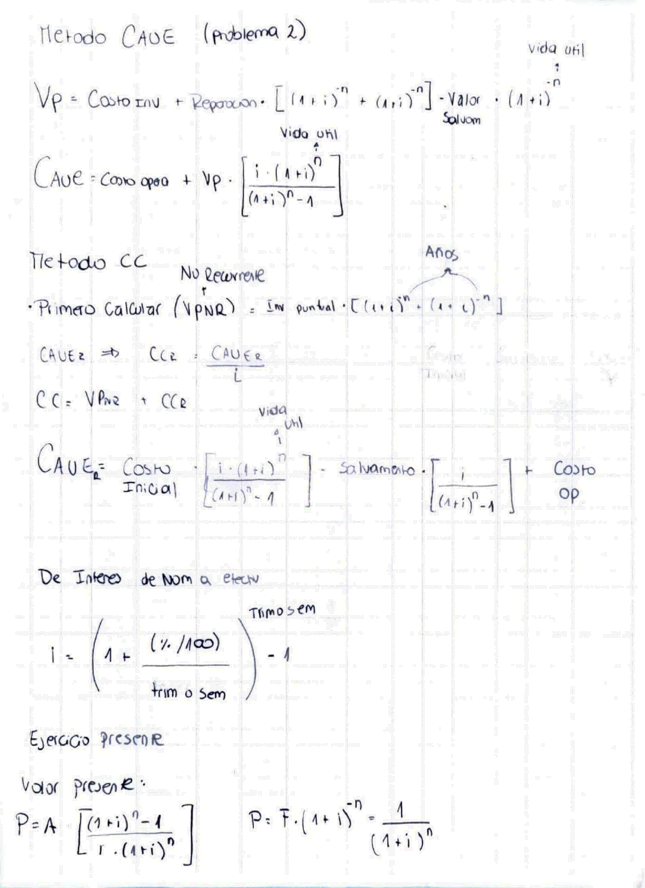 Metodo CAUE (problema 2)
Vida util
↑
Vp = Costo Inv + Reparacion · [(1+i)^-n + (1+i)^-n] - Valor Salvam · (1+i)^-n
Vida util
↑
CAUE = Costo opea + Vp · [i · (1+i)^n / (1+i)^n - 1]
Metodo CC
Años
No Recurrente
↑
· Primero Calcular (VPNR) = Inv puntual · [(1+i)^-n + (1+i)^-n]
CAUER ⇒ CCR = CAUER / i
CC = VPNR + CCR
Vida Util
↑
CAUER = Costo Inicial · [i · (1+i)^n / (1+i)^n - 1] - Salvamento · [i / (1+i)^n - 1] + Costo OP
De Interes de Nom a efectiv
i = (1 + (% /100) / trim o sem)^Trim o sem - 1
Ejercicio Presente
Valor presente:
P = A [(1+i)^n - 1 / i · (1+i)^n] P = F · (1+i)^-n = 1 / (1+i)^n